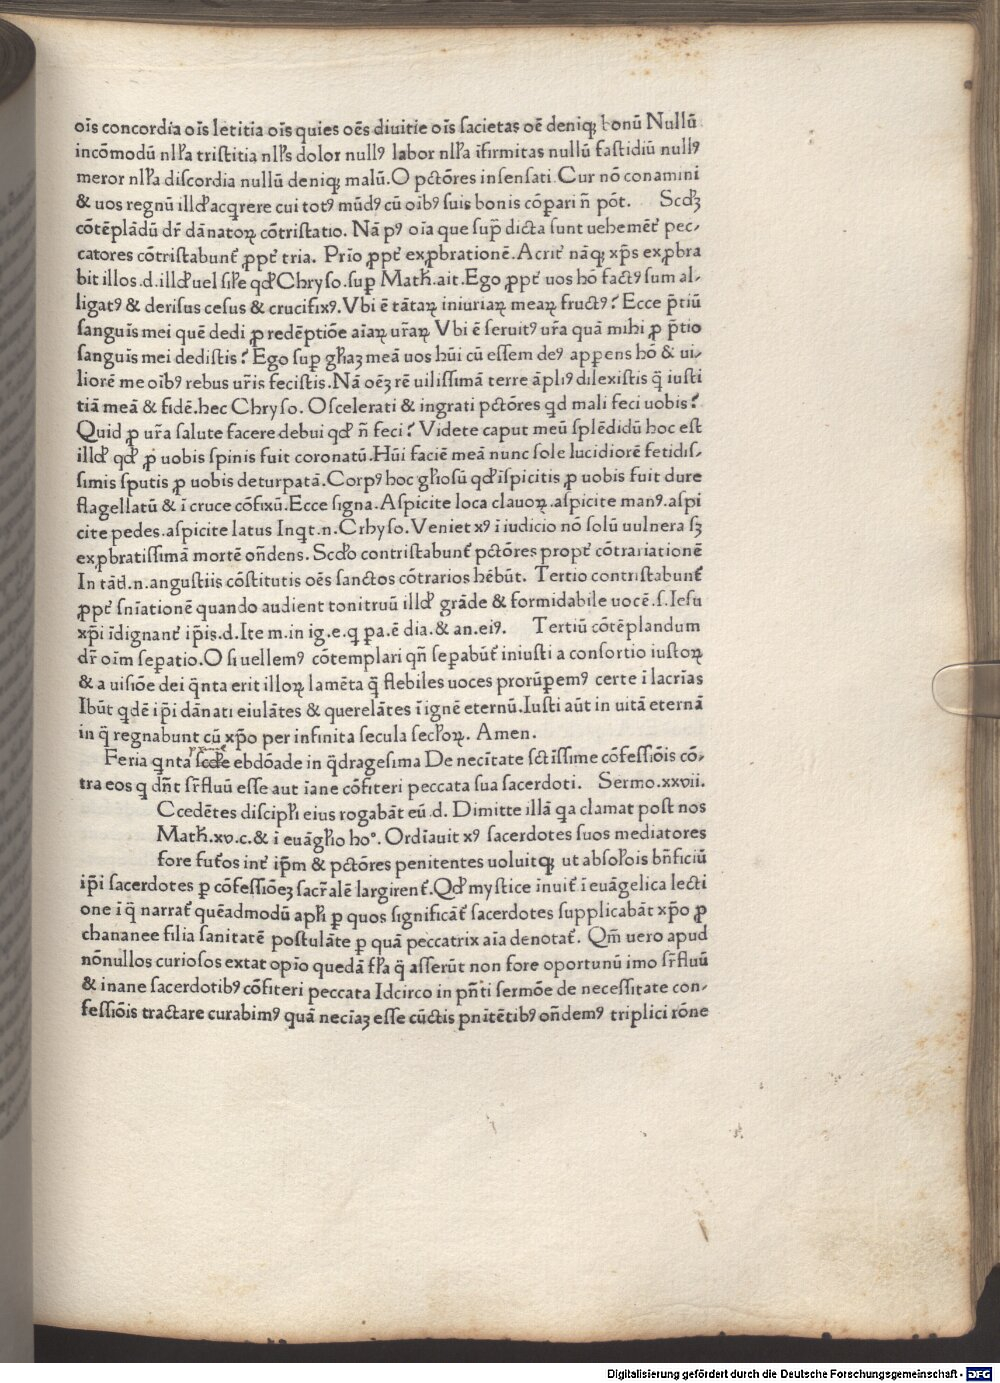 oīs concordia oīs letitia oīs quies oēs diuitie oīs sacietas oē deniqꝫ bonū Nullū
incōmodū nlꝉa tristitia nlꝉs dolor nullꝰ labor nlꝉa īfirmitas nullū fastidiū nullꝰ
meror nlꝉa discordia nullū deniqꝫ malū.O pctōres insensati Cur nō conamini
& uos regnū illđ acqrere cui totꝰ mūdꝰ cū oibꝰ suis bonis cōpari n̄ pōt. Scđꝫ
cōtēplādū dr̄ dānatoꝝ cōtristatio. Nā pꝰ oīa que sup̄ dicta sunt uehemēt̄ pec-
catores cōtristabunt̄ ꝓpt̄ tria. Prīo ꝓpt̄ exꝓbrationē.Acrit̄ nāqꝫ xp̄s exꝓbra
bit illos.d.illđ uel siꝉe qđ Chryso.suꝑ Matħ.ait.Ego ꝓpt̄ uos hō factꝰ sum al-
ligatꝰ & derisus cesus & crucifixꝰ.Vbi ē tātaꝝ iniuriaꝝ meaꝝ fructꝰ? Ecce p̄tiū
sanguīs mei quē dedi ꝓ redēptiōe aīaꝝ ur̄aꝝ Vbi ē seruitꝰ ur̄a quā mihi ꝓ p̄tio
sanguīs mei dedistis? Ego suꝑ gꝉiaꝫ meā uos hūi cū essem deꝰ apꝑens hō & ui-
liorē me oībꝰ rebus ur̄is fecistis.Nā oēꝫ rē uilissimā terre āpliꝰ dilexistis q̄ iusti
tiā meā & fidē.hec Chryso. O scelerati & ingrati pctōres qd mali feci uobis?
Quid ꝓ ur̄a salute facere debui qđ n̄ feci? Videte caput meū splēdidū hoc est
illđ qđ ꝓ uobis spinis fuit coronatū.Hūi faciē meā nunc sole lucidiorē fetidis-
simis sputis ꝓ uobis deturpatā.Corpꝰ hoc gꝉiosū qđ īspicitis ꝓ uobis fuit dure
flagellatū & ī cruce cōfixū.Ecce signa.Aspicite loca clauoꝝ.aspicite manꝰ.aspi
cite pedes.aspicite latus Inqt.n.Crhyso.Veniet xꝰ ī iudicio nō solū uulnera sꝫ
exꝓbratissimā mortē on̄dens. Scđo contristabunt̄ pctōres propt̄ cōtrariationē
In tād.n.angustiis cōstitutis oēs sanctos cōtrarios hēbūt. Tertio contristabunt̄
ꝓpt̄ sn̄iationē quando audient tonitruū illđ grāde & formidabile uocē.s.Iesu
xp̄i īdignant̄ ip̄is.d.Ite m.in ig.e.q pa.ē dia.& an.eiꝰ. Tertiū cōtēplandum
dr̄ oīm seꝑatio.O si uellemꝰ cōtemplari qn̄ seꝑabūt̄ iniusti a consortio iustoꝝ
& a uisiōe dei q̄nta erit illoꝝ lamēta q̄ flebiles uoces prorūpemꝰ certe ī lacrīas
Ibūt qdē ip̄i dānati eiulātes & querelātes ī ignē eternū.Iusti aūt in uitā eternā
in q̄ regnabunt cū xp̄o per infinita secula secꝉoꝝ. Amen.
Feria qnta scđe ebdōade in q̄dragesima De necītate sctīssime cōfessiōis cō-
tra eos q dn̄t sr̄fluū esse aut īane cōfiteri peccata sua sacerdoti. Sermo.xxvii.
Ccedētes discipꝉi eius rogabāt eū.d. Dimitte illā qa clamat post nos
Matħ.xv.c.& ī euāgꝉio ho°. Ordīauit xꝰ sacerdotes suos mediatores
fore fut̄os int̄ ip̄m & pctōres penitentes uoluitqꝫ ut absoꝉois bn̄ficiū
ip̄i sacerdotes ꝑ cōfessiōeꝫ sacr̄alē largirent̄.Qđ mystice īnuit̄ ī euāgelica lecti
one ī q̄ narrat̄ quēadmodū apꝉi ꝑ quos significāt̄ sacerdotes supplicabāt xp̄o ꝓ
chananee filia sanitatē postulāte ꝑ quā peccatrix aīa denotat̄. Qm̄ uero apud
nōnullos curiosos extat opīo quedā fꝉa q̄ asserūt non fore oportunū imo sr̄fluū
& inane sacerdotibꝰ cōfiteri peccata Idcirco in pn̄ti sermōe de necessitate con-
fessiōis tractare curabimꝰ quā necīaꝫ esse cūctis pnitētibꝰ on̄demꝰ triplici rōne
Digitalisierung gefördert durch die Deutsche Forschungsgemeinschaft - DFG